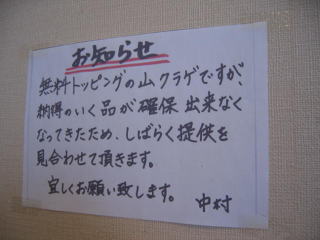 お知らせ
無料トッピングの山クラゲですが、
納得のいく品が確保出来なく
なってきたため、しばらく提供を
見合わせて頂きます。
宜しくお願い致します。
中村